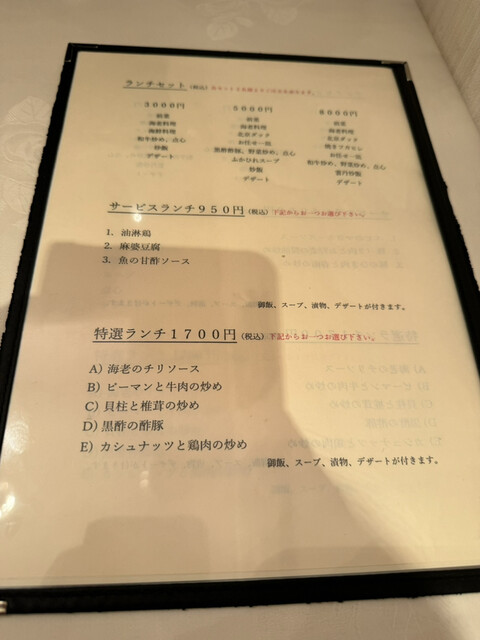 ランチセット (税込) 各セット2名様よりご注文を承ります。
3000円
前菜
海老料理
海鮮料理
和牛炒め、点心
炒飯
デザート
5000円
前菜
海老料理
北京ダック
お任せ一品
黒酢酢豚、野菜炒め、点心
ふかひれスープ
炒飯
デザート
8000円
前菜
海老料理
北京ダック
焼きフカヒレ
お任せ一品
和牛炒め、野菜炒め、点心
雲丹炒飯
デザート
サービスランチ950円 (税込) 下記からお一つお選び下さい。
1. 油淋鶏
2. 麻婆豆腐
3. 魚の甘酢ソース
御飯、スープ、漬物、デザートが付きます。
特選ランチ1700円 (税込) 下記からお一つお選び下さい。
A) 海老のチリソース
B) ピーマンと牛肉の炒め
C) 貝柱と椎茸の炒め
D) 黒酢の酢豚
E) カシュナッツと鶏肉の炒め
御飯、スープ、漬物、デザートが付きます。